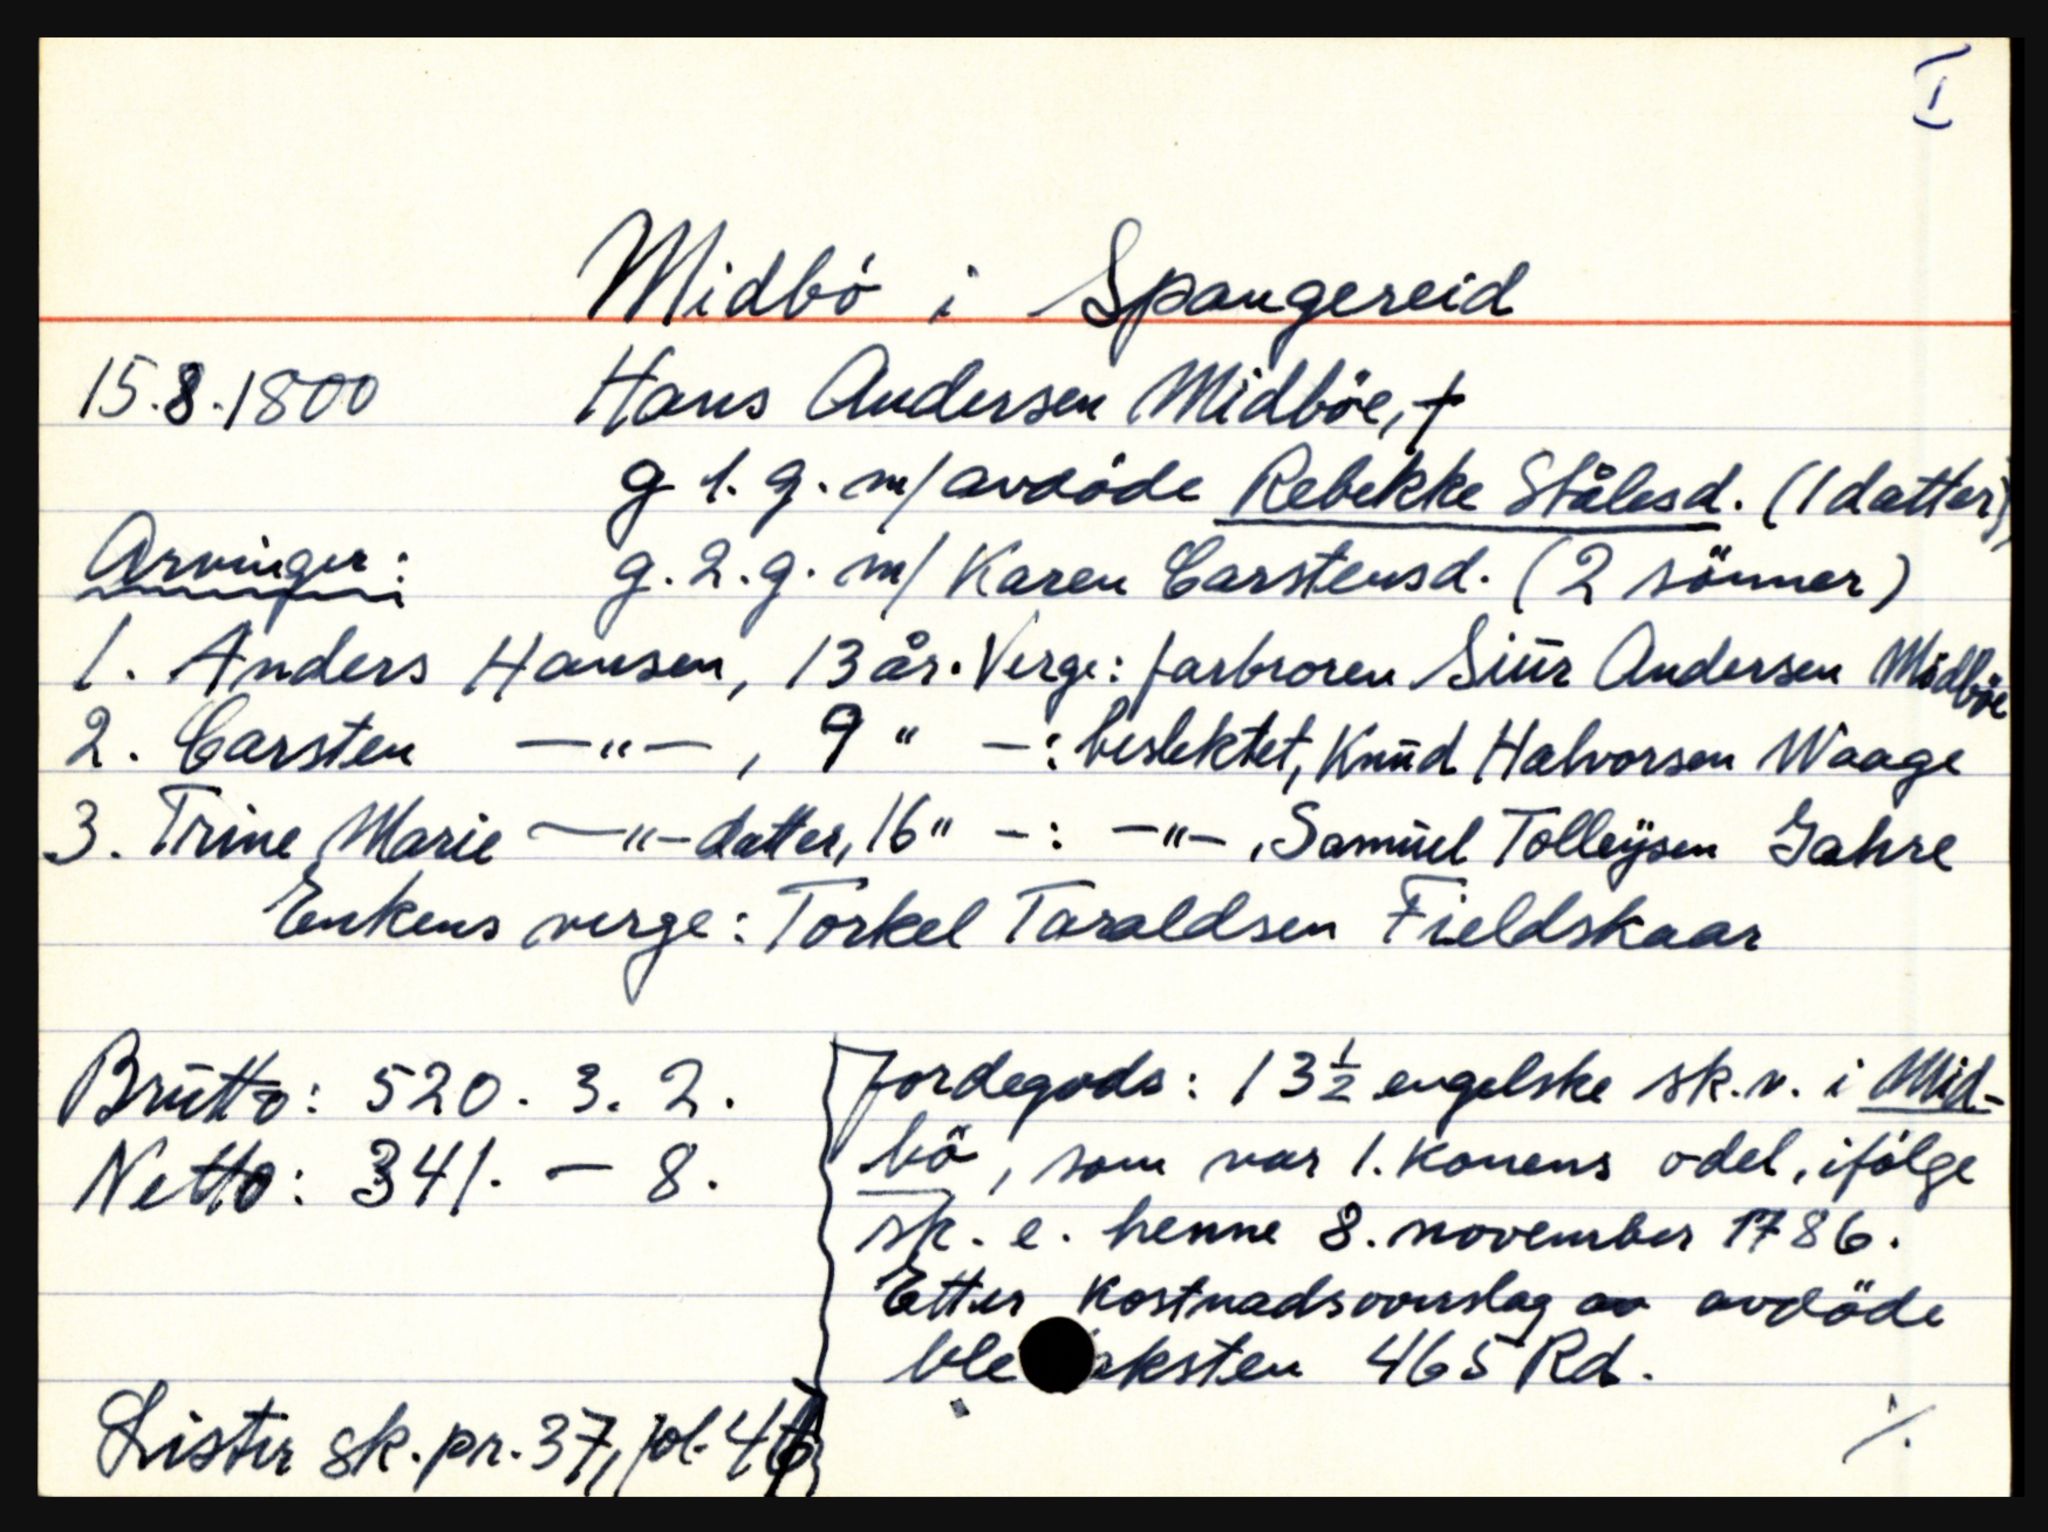 I
Midbö i Spangereid
15.8.1800 Hans Andersen Midböe, †
g 1. g. m/ avdöde Rebekke Stålesd. (1 datter)
Arvinger: g. 2. g. m/ Karen Carstensd. (2 sönner)
1. Anders Hansen, 13 år. Verge: farbroren Siur Andersen Midböe
2. Carsten —"—, 9 " —: beslektet, Knud Halvorsen Waage
3. Trine Marie —"—datter, 16 " —: —"—, Samuel Tolleÿsen Gahre
Enkens verge: Torkel Taraldsen Fieldskaar
Brutto: 520. 3. 2.
Netto: 341. — 8.
Lister sk. pr. 37, fol.
Jordegods: 13 ½ engelske sk. v. i Mid-
bö, som var 1. konens odel, ifölge
sk. e. henne 8. november 1786.
Etter kostnadsoverslag av avdöde
ble aksten 465 Rd.
./.